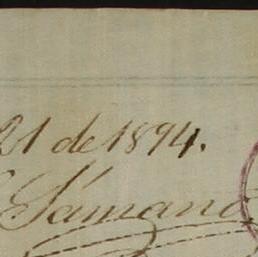 21 de 1894.
Sámano